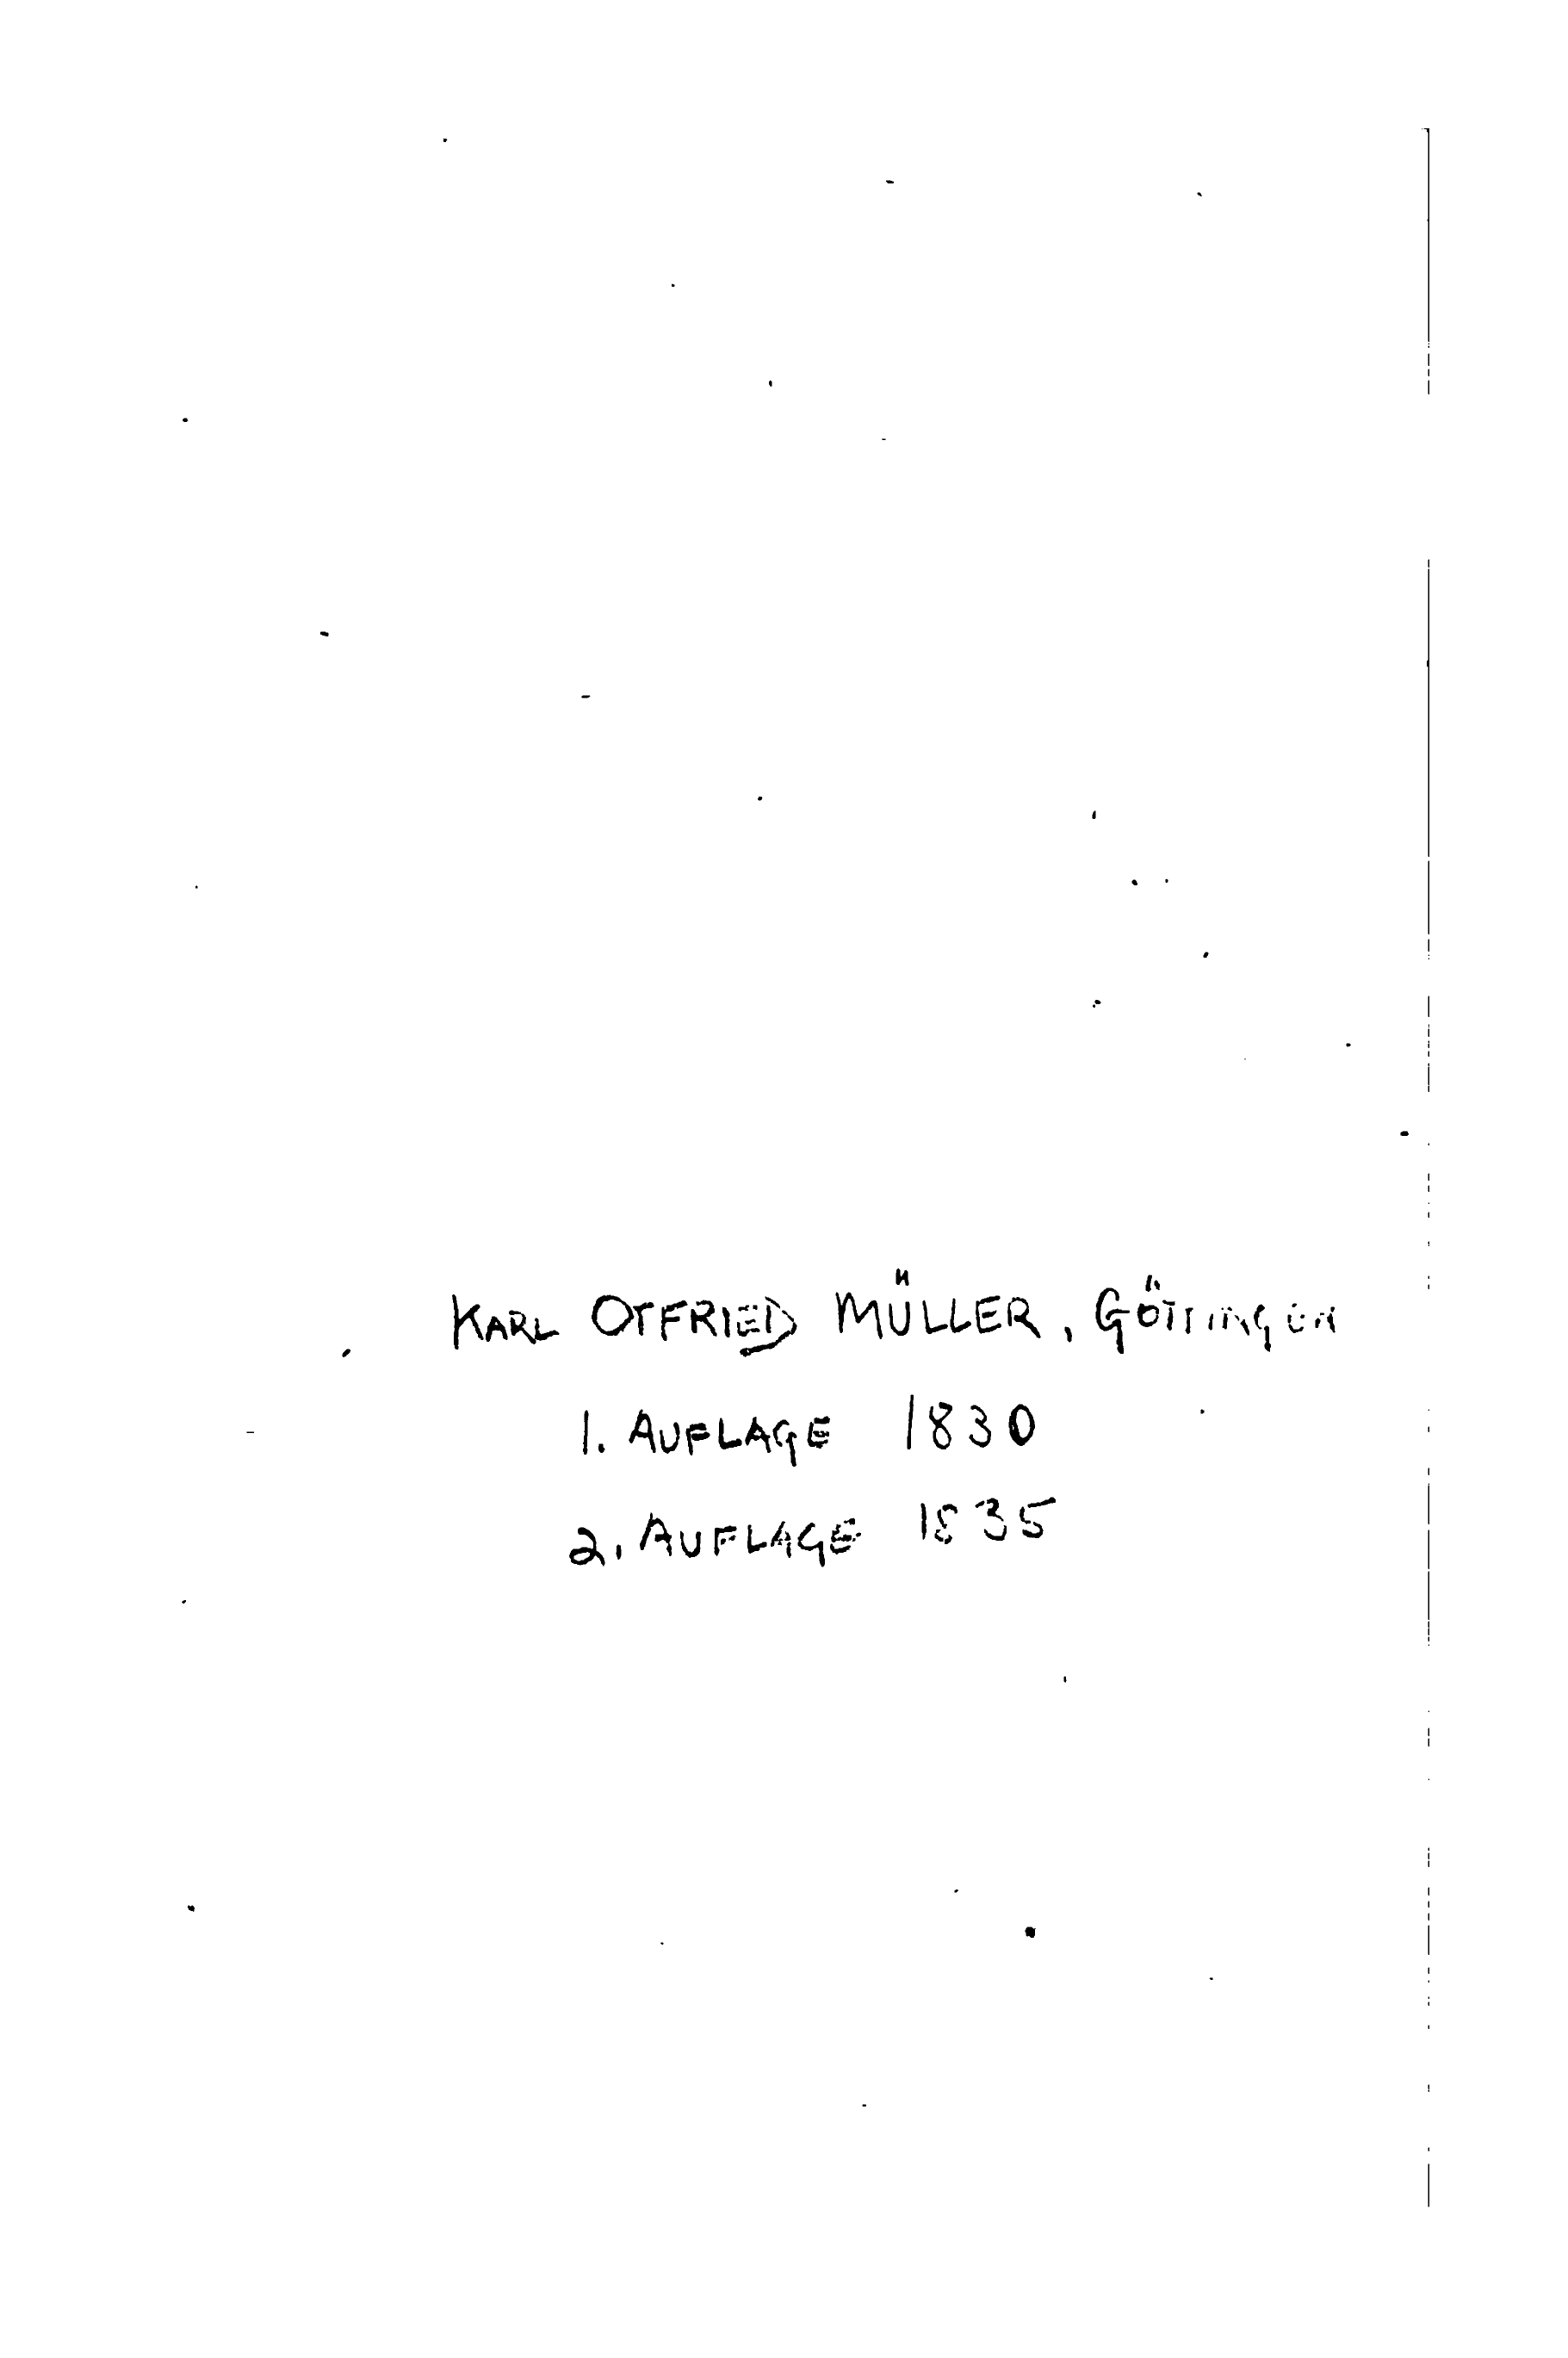 KARL OTFRIED MÜLLER, GÖTTINGEN
1. AUFLAGE 1830
2. AUFLAGE 1835